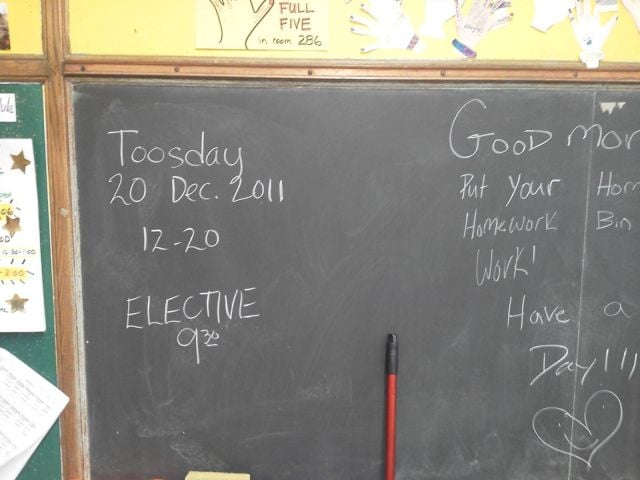 FULL
FIVE
in room 286
Toosday
20 Dec. 2011
12-20
ELECTIVE
9 30
GOOD mor
Put Your Hom
Homework Bin
Work!
Have a
Day!!!